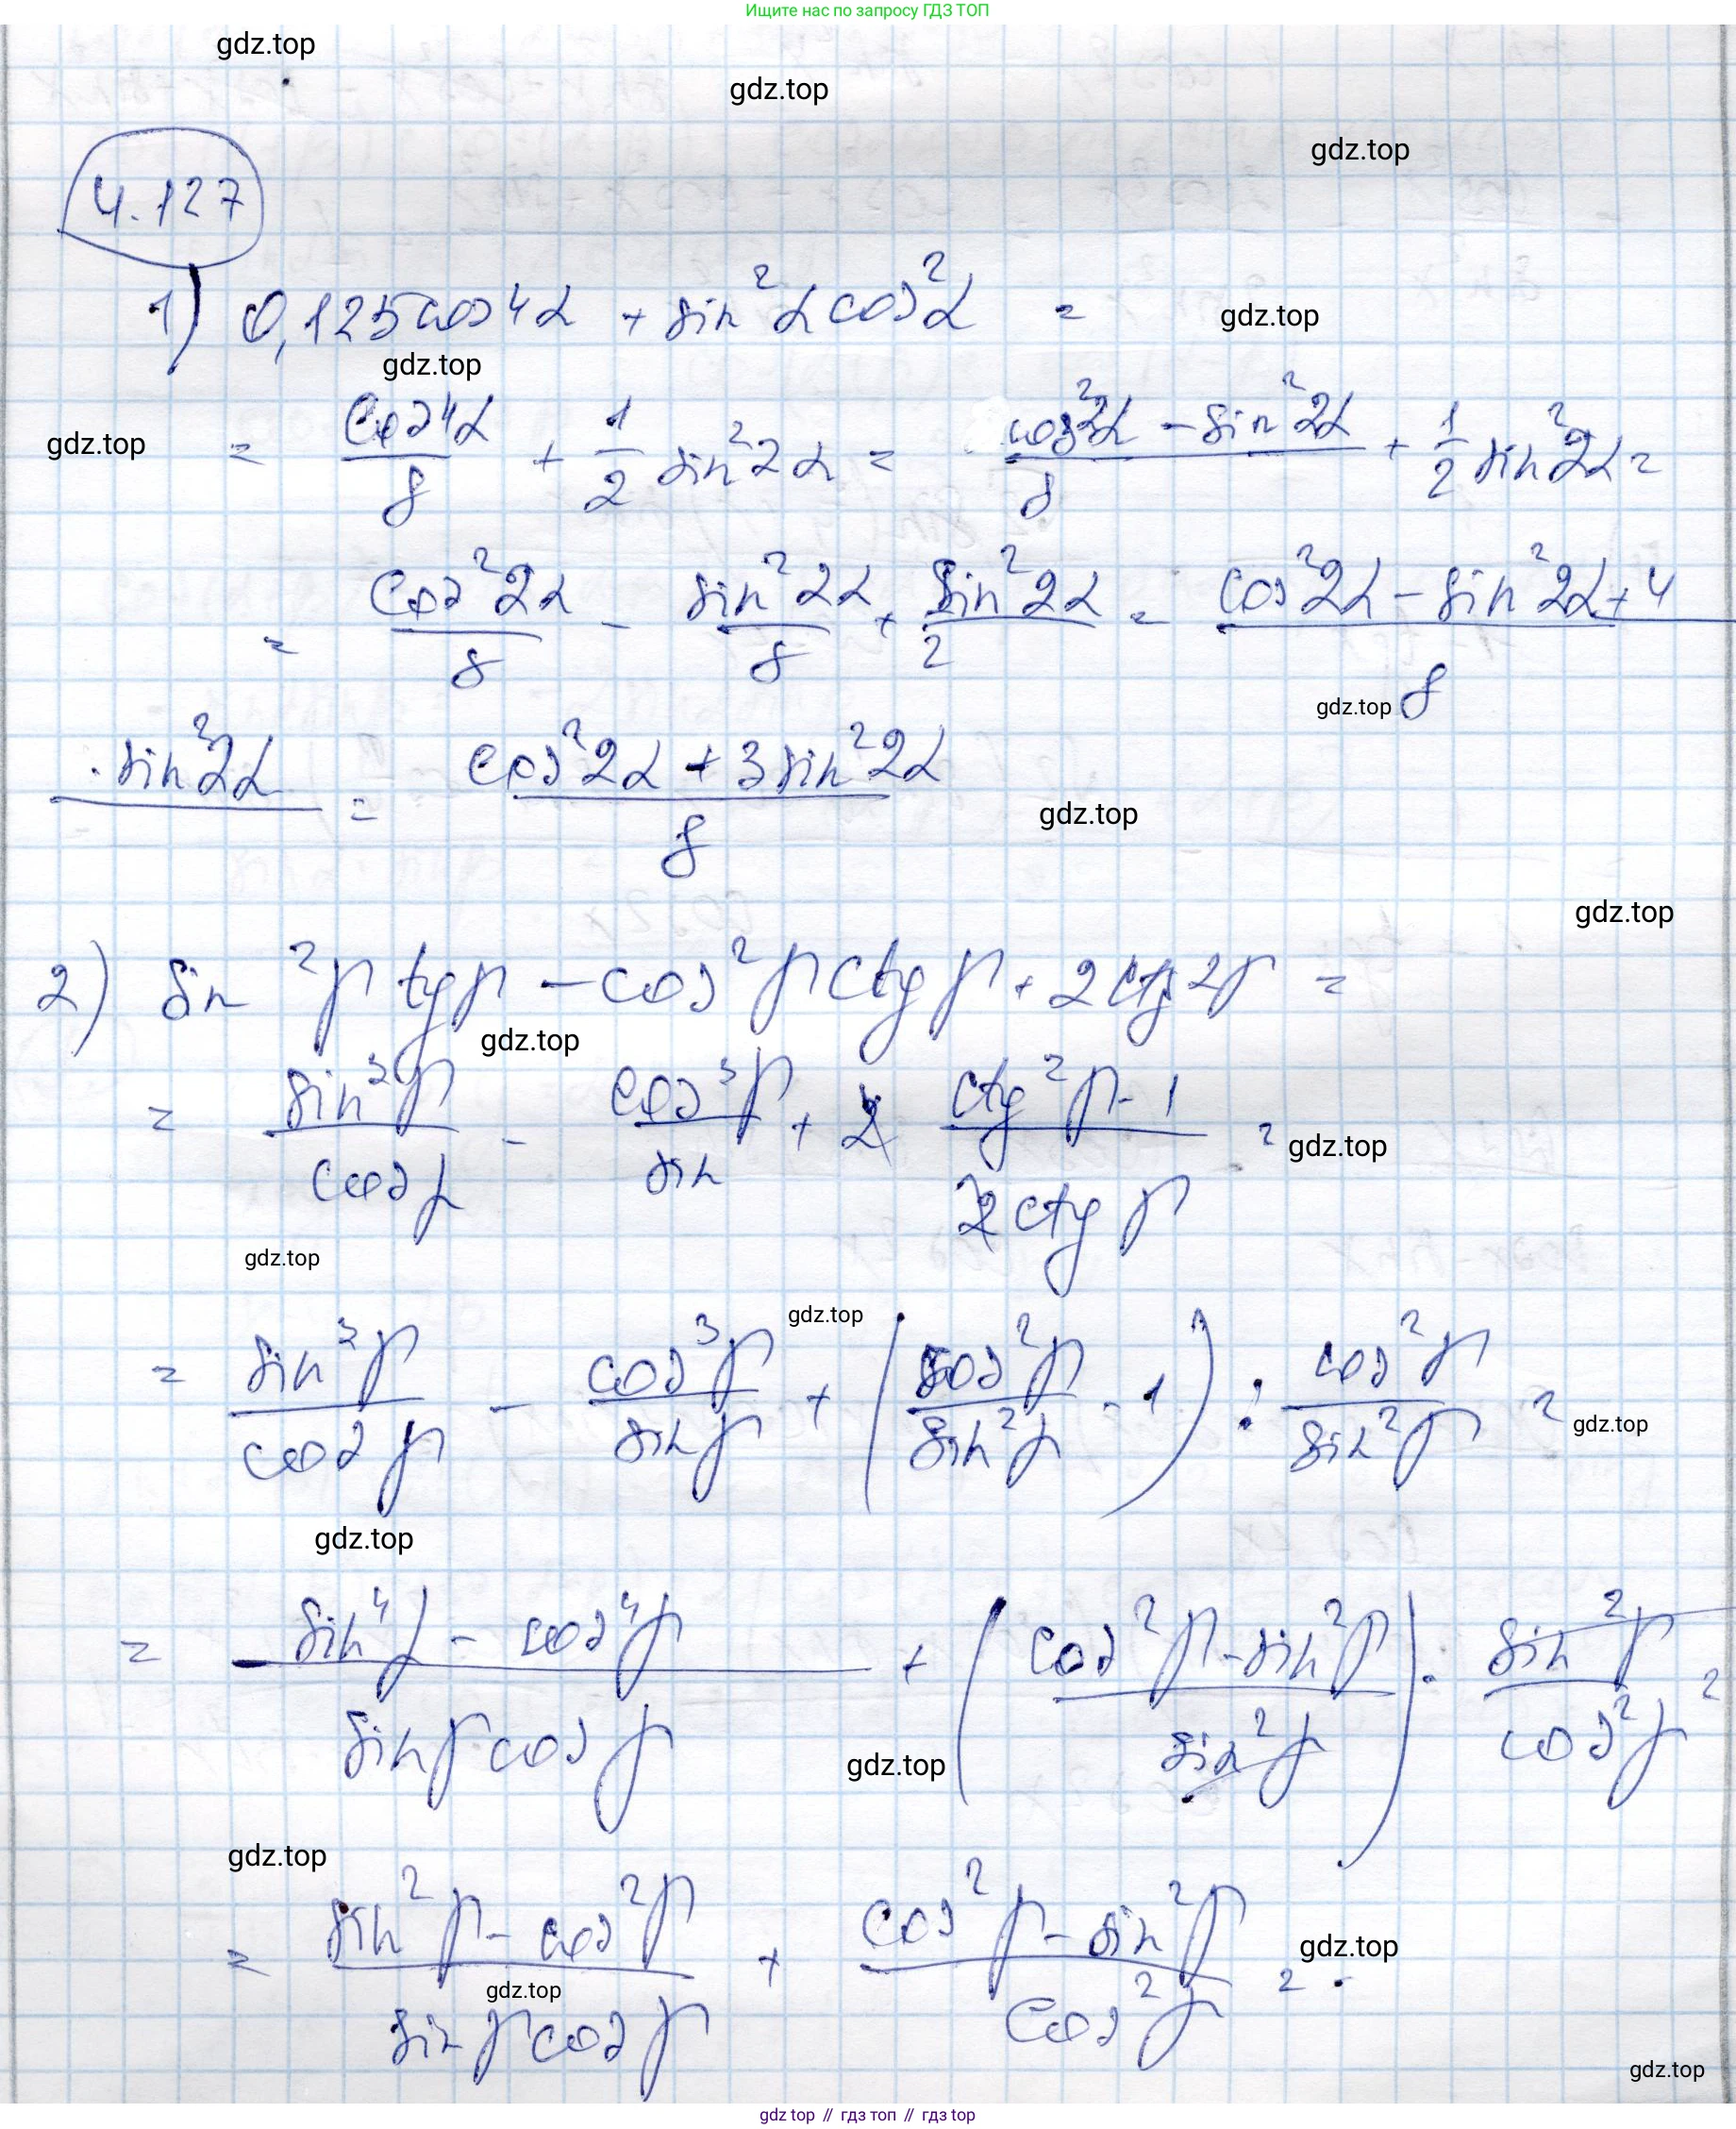 Ищите нас по запросу ГДЗ ТОП
gdz.top
gdz.top
gdz.top
4.127
1) 0,125cos4α + sin²α cos²α =
gdz.top
gdz.top
gdz.top
= cos4α/8 + 1/2 sin²2α = (cos²2α - sin²2α)/8 + 1/2 sin²2α =
= cos²2α/8 - sin²2α/8 + sin²2α/2 = (cos²2α - sin²2α + 4
gdz.top
· sin²2α)/8 = (cos²2α + 3sin²2α)/8
gdz.top
gdz.top
2) sin²β tgβ - cos²β ctgβ + 2ctg2β =
gdz.top
= sin³β/cosβ - cos³β/sin + 2 (ctg²β - 1)/(2ctgβ) =
gdz.top
gdz.top
gdz.top
= sin³β/cosβ - cos³β/sinβ + (cos²β/sin²β - 1) : cos²β/sin²β =
gdz.top
gdz.top
= (sin⁴β - cos⁴β)/(sinβ cosβ) + ((cos²β - sin²β)/sin²β) · sin²β/cos²β =
gdz.top
gdz.top
= (sin²β - cos²β)/(sinβ cosβ) + (cos²β - sin²β)/cos²β =
gdz.top
gdz.top
gdz.top
gdz top // гдз топ // gdz top